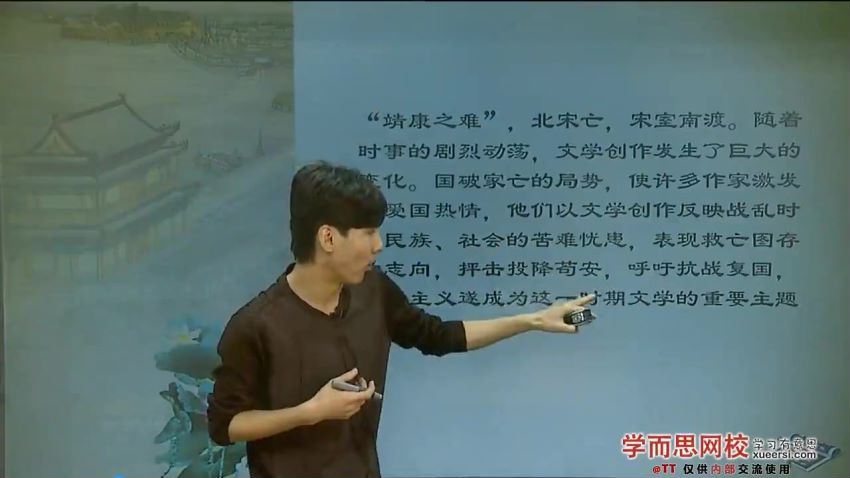 “靖康之难”，北宋亡，宋室南渡。随着
时事的剧烈动荡，文学创作发生了巨大的
变化。国破家亡的局势，使许多作家激发
爱国热情，他们以文学创作反映战乱时
民族、社会的苦难忧患，表现救亡图存
志向，抨击投降苟安，呼吁抗战复国，
主义遂成为这一时期文学的重要主题
学而思网校 学习有意思
xueersi.com
@TT 仅供内部交流使用